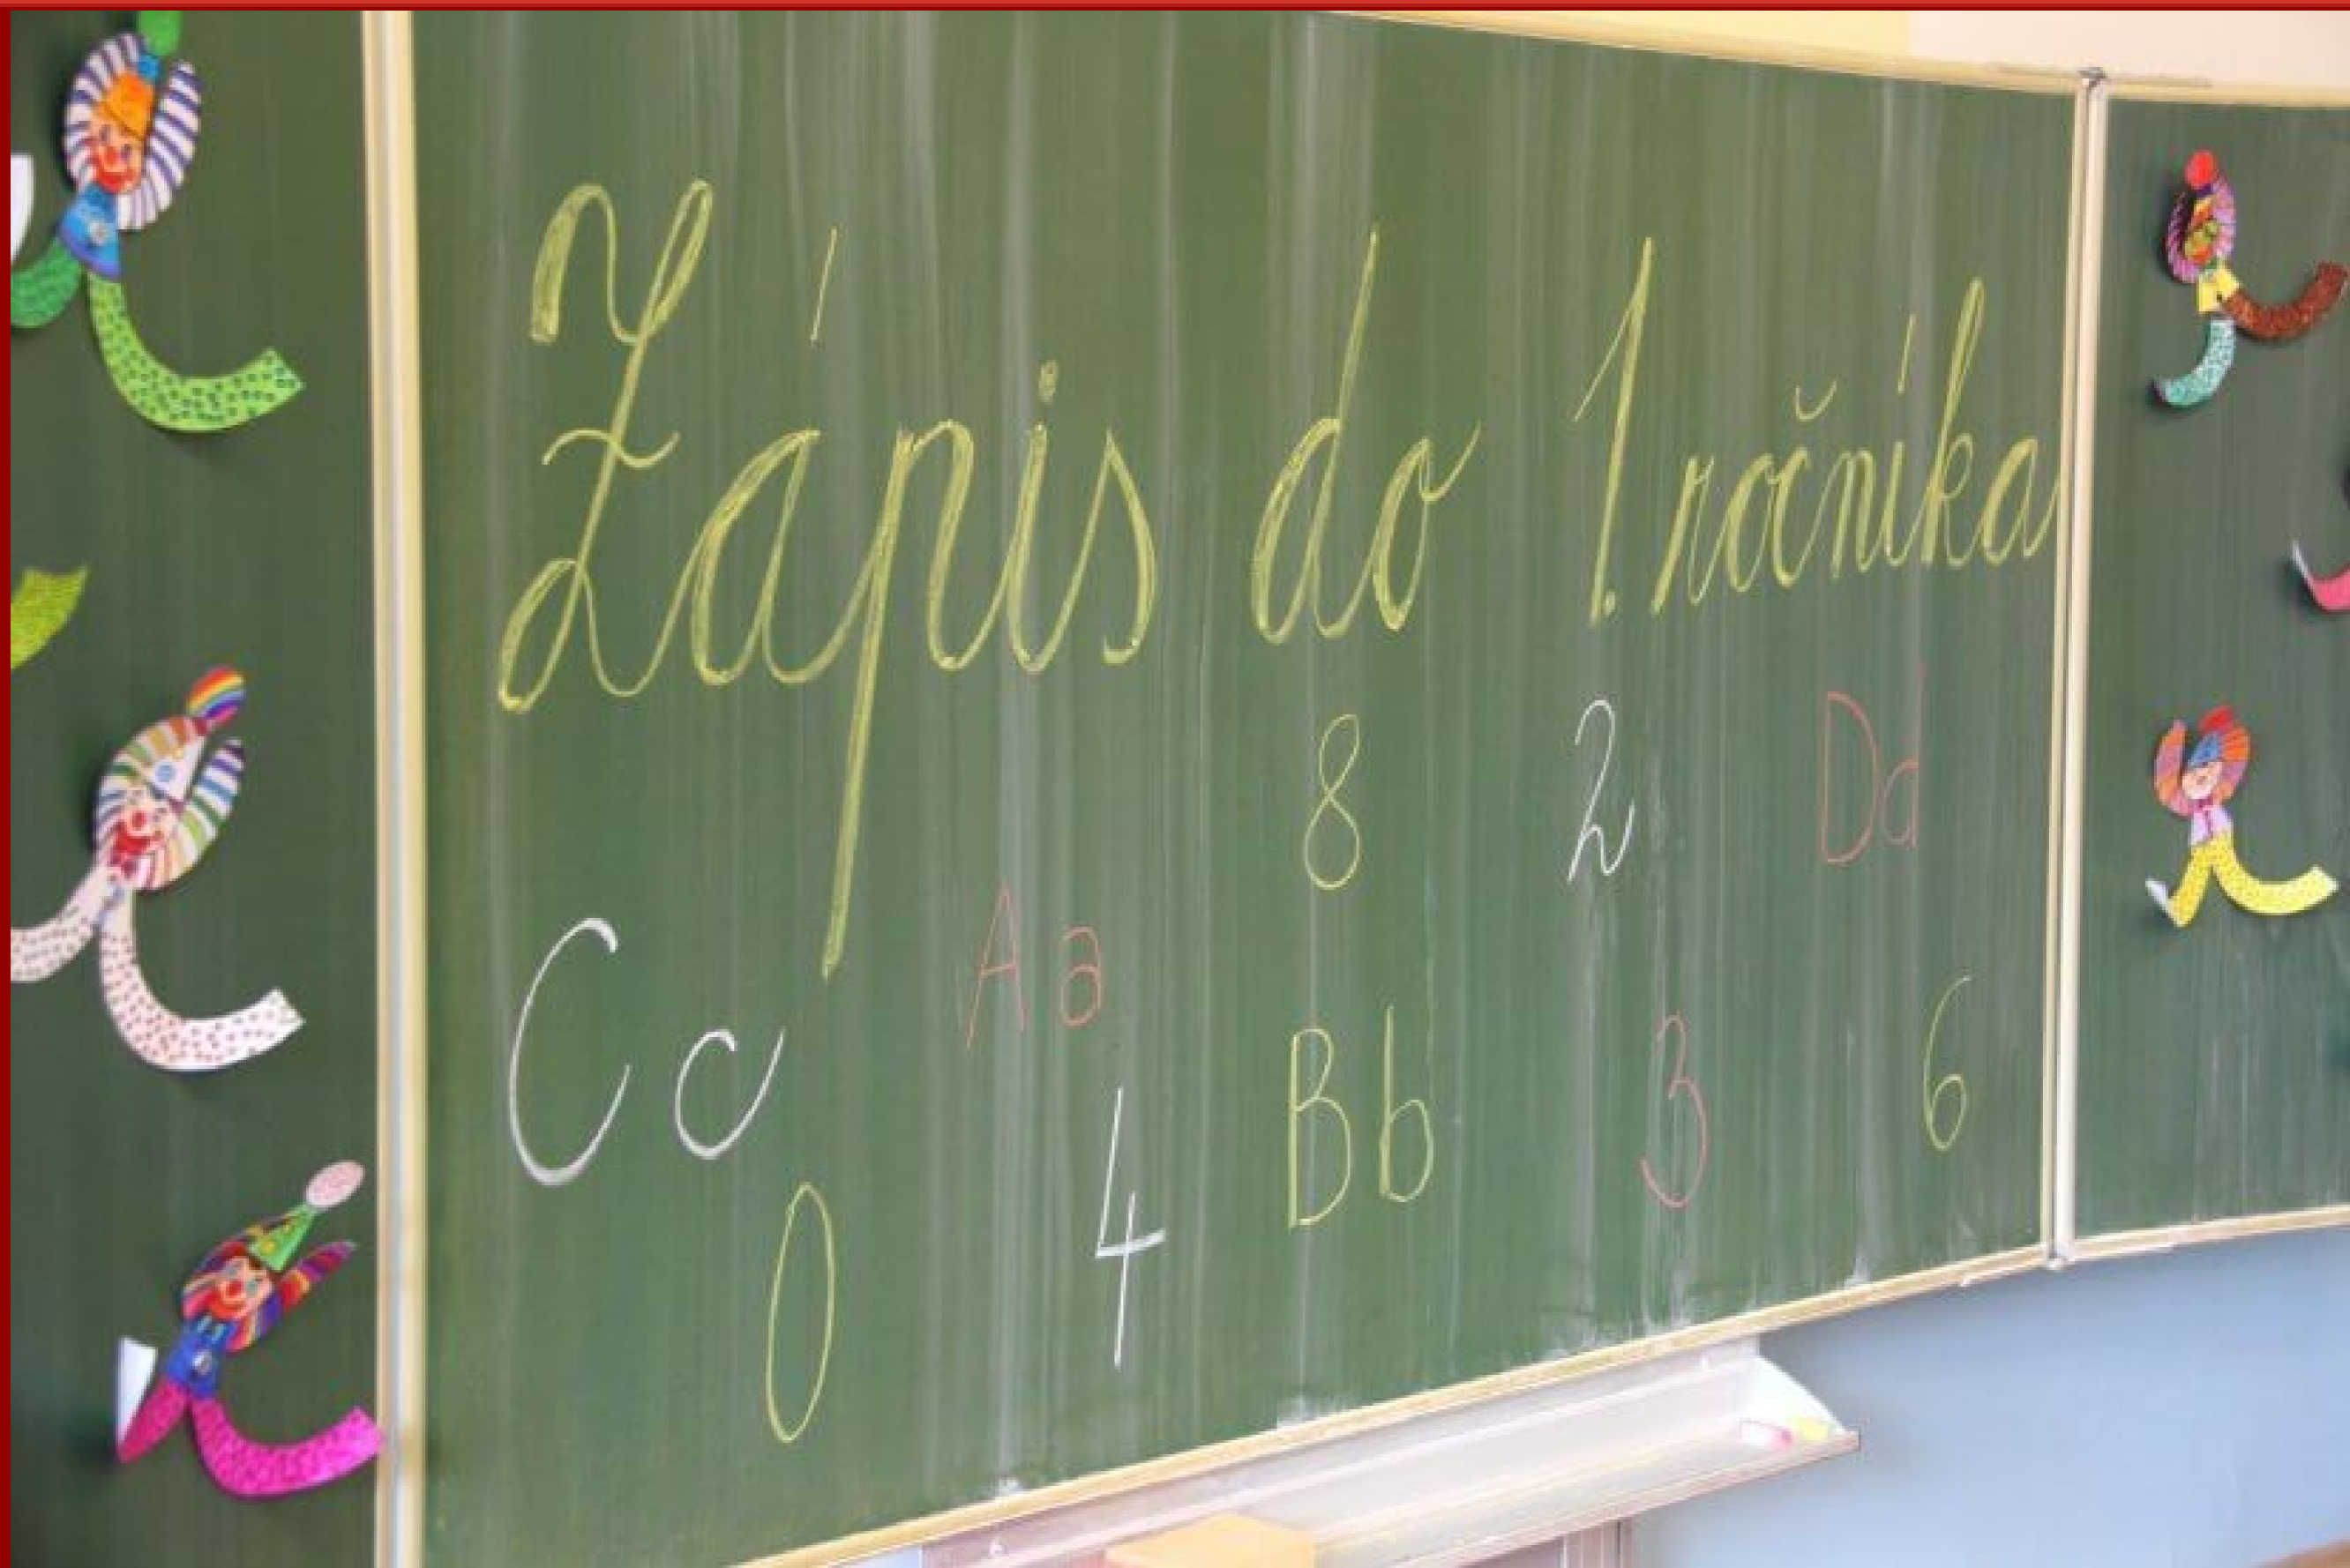 Zápis do 1. ročníka
8 2 Dd
Cc Aa
Bb 3 6
0 4